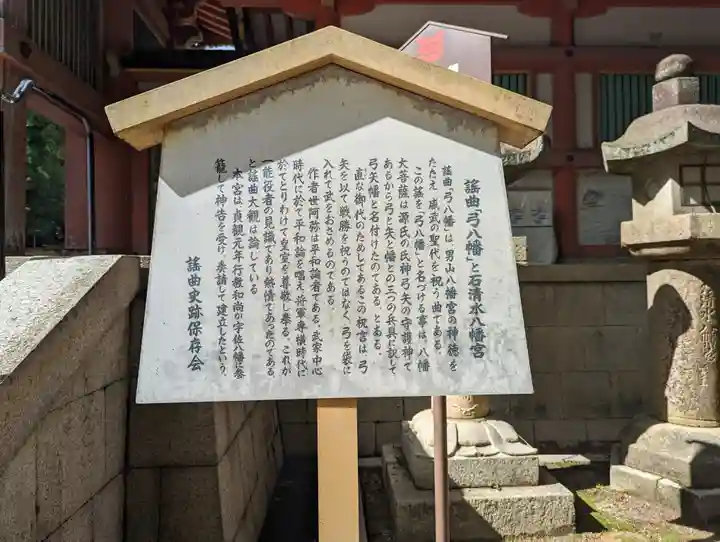 謡曲「弓八幡」と石清水八幡宮
謡曲「弓八幡」は、男山八幡宮の神徳を
たたえ、威武の聖代を祝う曲である。
この謡を「弓八幡」と名づける事は、八幡
大菩薩は源氏の氏神、弓矢の守護神で
あるから弓と矢と幡との三つの兵具に訳して
弓矢幡と名付けたのである、とある。
直なる御代のためしてあるこの祝言は、弓
矢を以て戦勝を祝うのではなく、弓を袋に
入れて武をおさめるのである。
作者世阿弥は平和論者である。武家中心
時代に於て平和論を唱え、将軍専横時代に
於てとりわけて皇室を尊敬し奉る。これが
一能役者の見識であり、熱情であったのである
と謡曲大観は論じている。
本宮は、貞観元年行教和尚が宇佐八幡に参
籠して神告を受け、奏請して建立したという。
謡曲史跡保存会